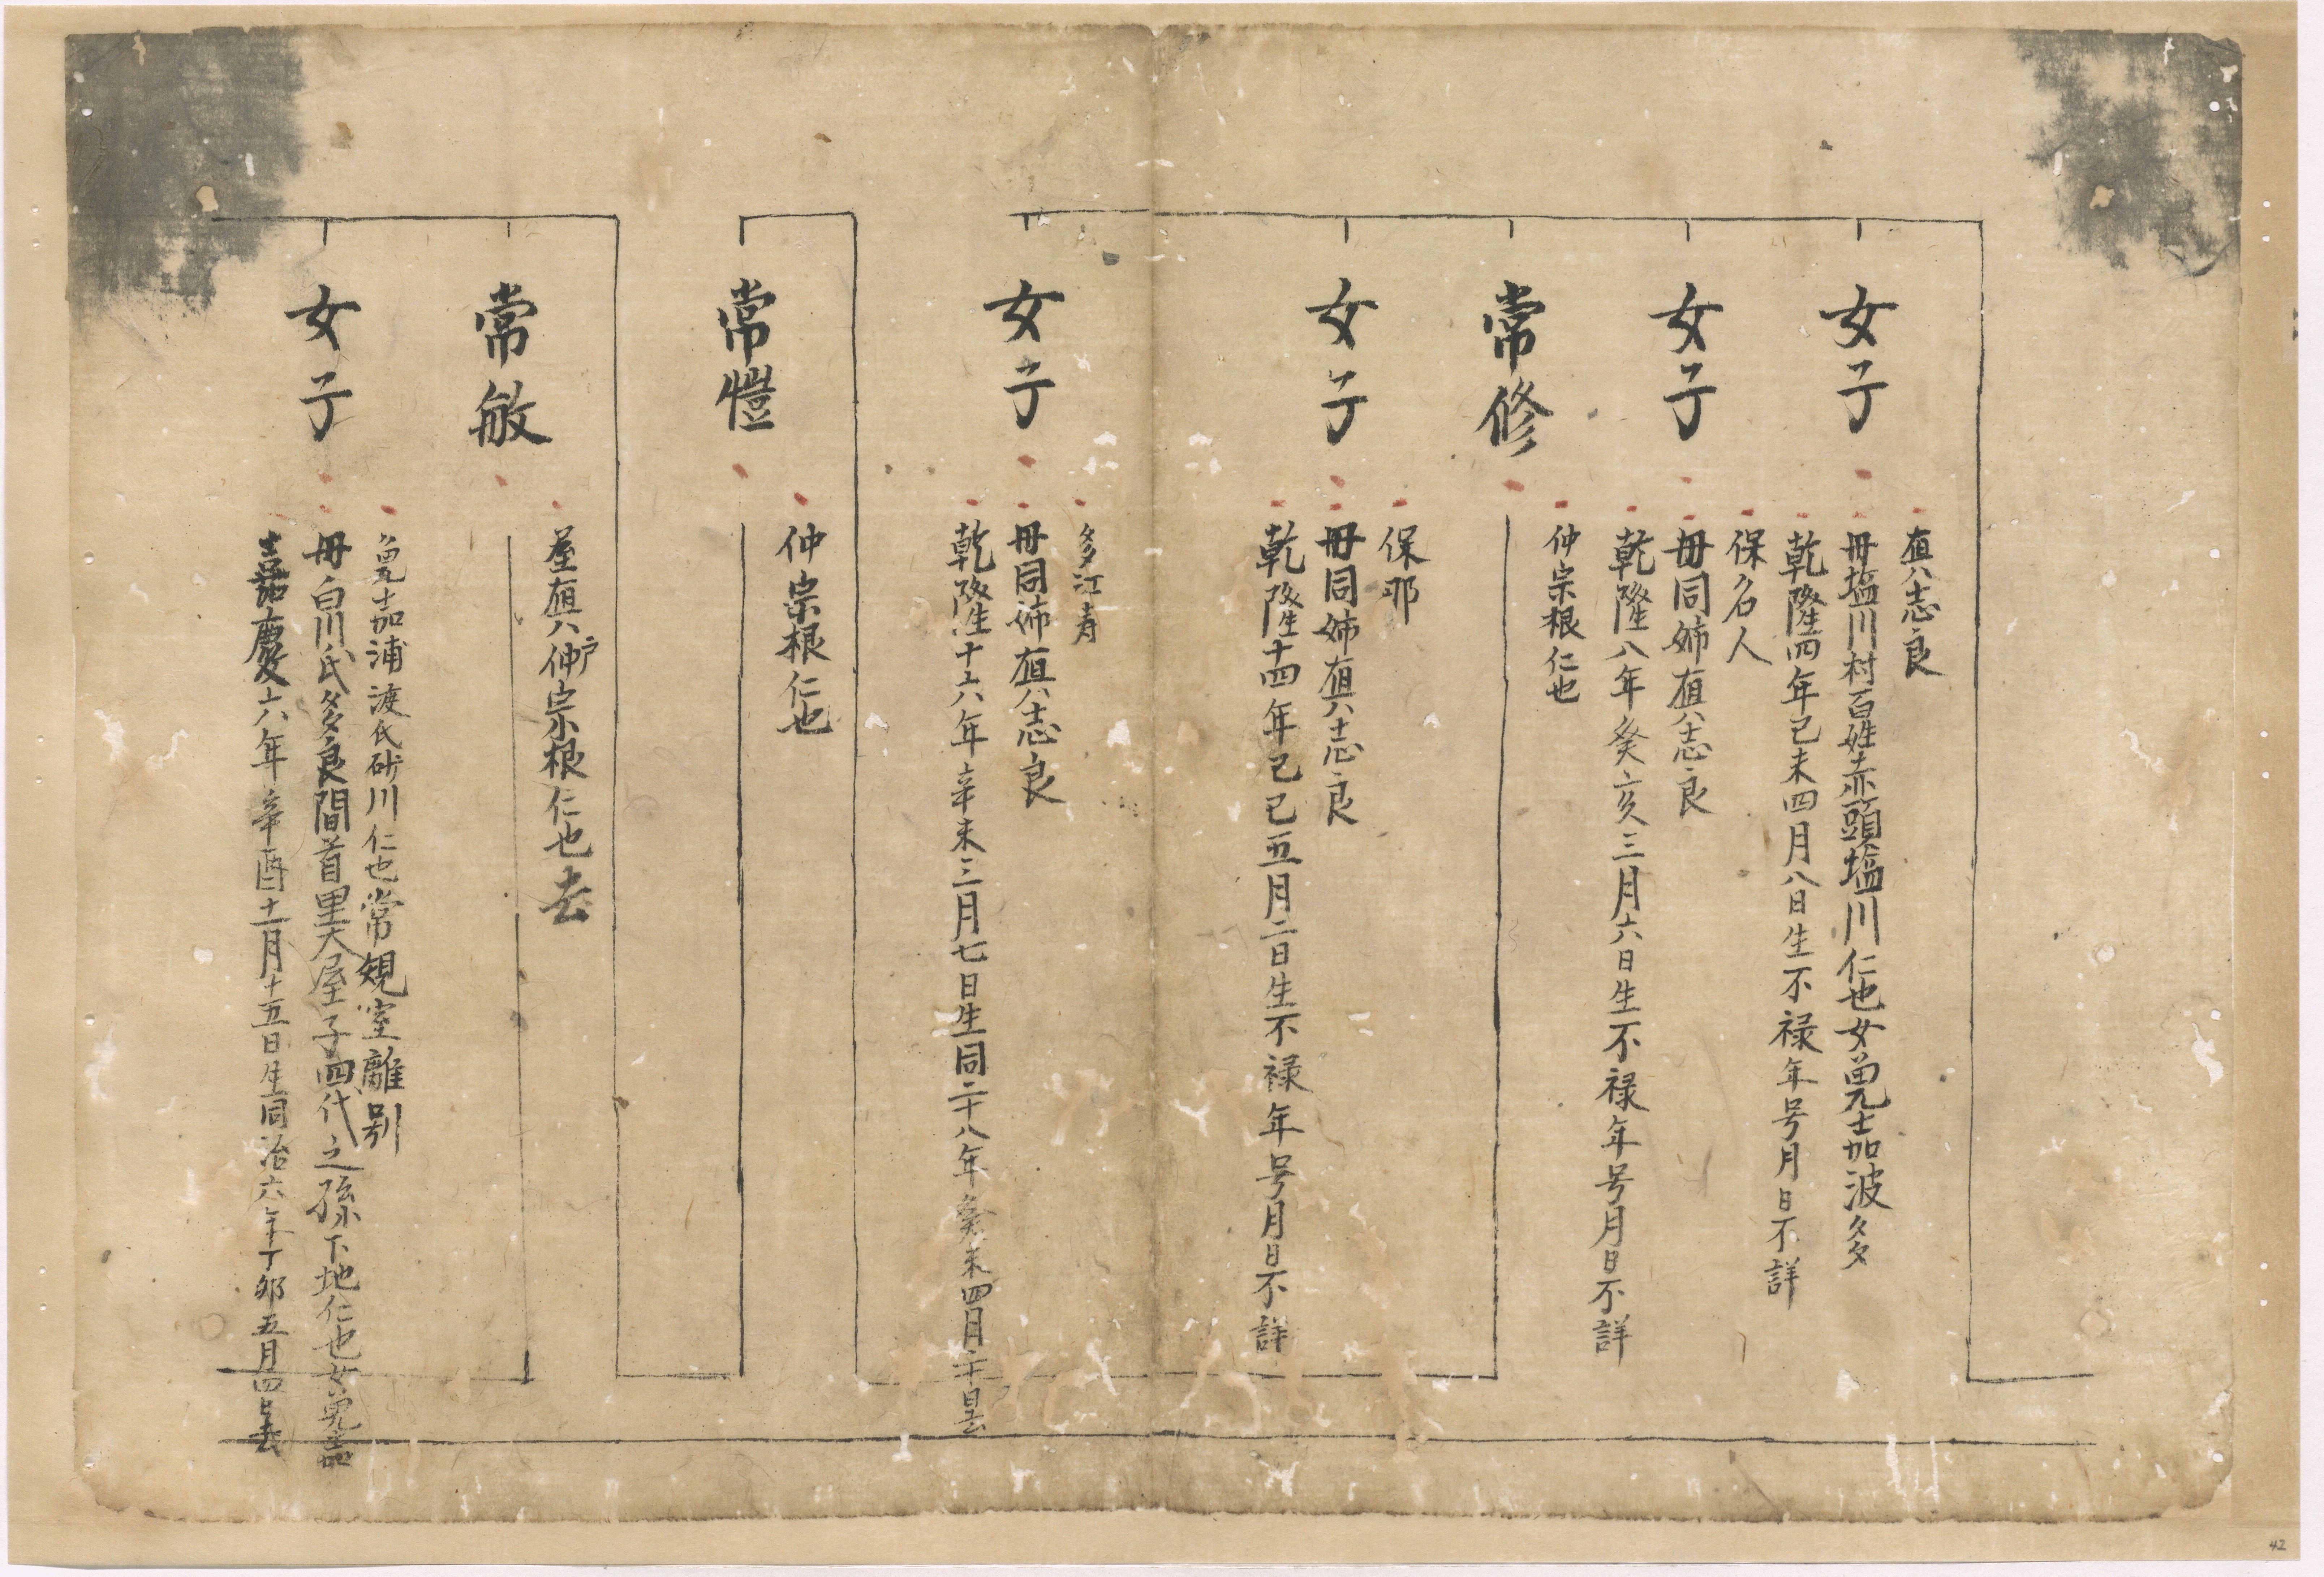 女子
真志良
母塩川村百姓赤頭塩川仁也女免嘉波多
乾隆四年己未四月八日生不禄年号月日不詳
女子
保名人
母同姉真志良
乾隆八年癸亥三月六日生不禄年号月日不詳
常修
仲宗根仁也
女子
保那
母同姉真志良
乾隆十四年己巳五月二日生不禄年号月日不詳
女子
多江寿
母同姉真志良
乾隆十六年辛未三月七日生同二十八年癸未四月二十日去
常愷
仲宗根仁也
常敏
屋真戸仲宗根仁也去
女子
免嘉浦渡氏砂川仁也常規室離別
母白川氏多良間首里大屋子四代之孫下地仁也女免嘉
嘉慶六年辛酉十一月十五日生同治六年丁卯五月四日去
42